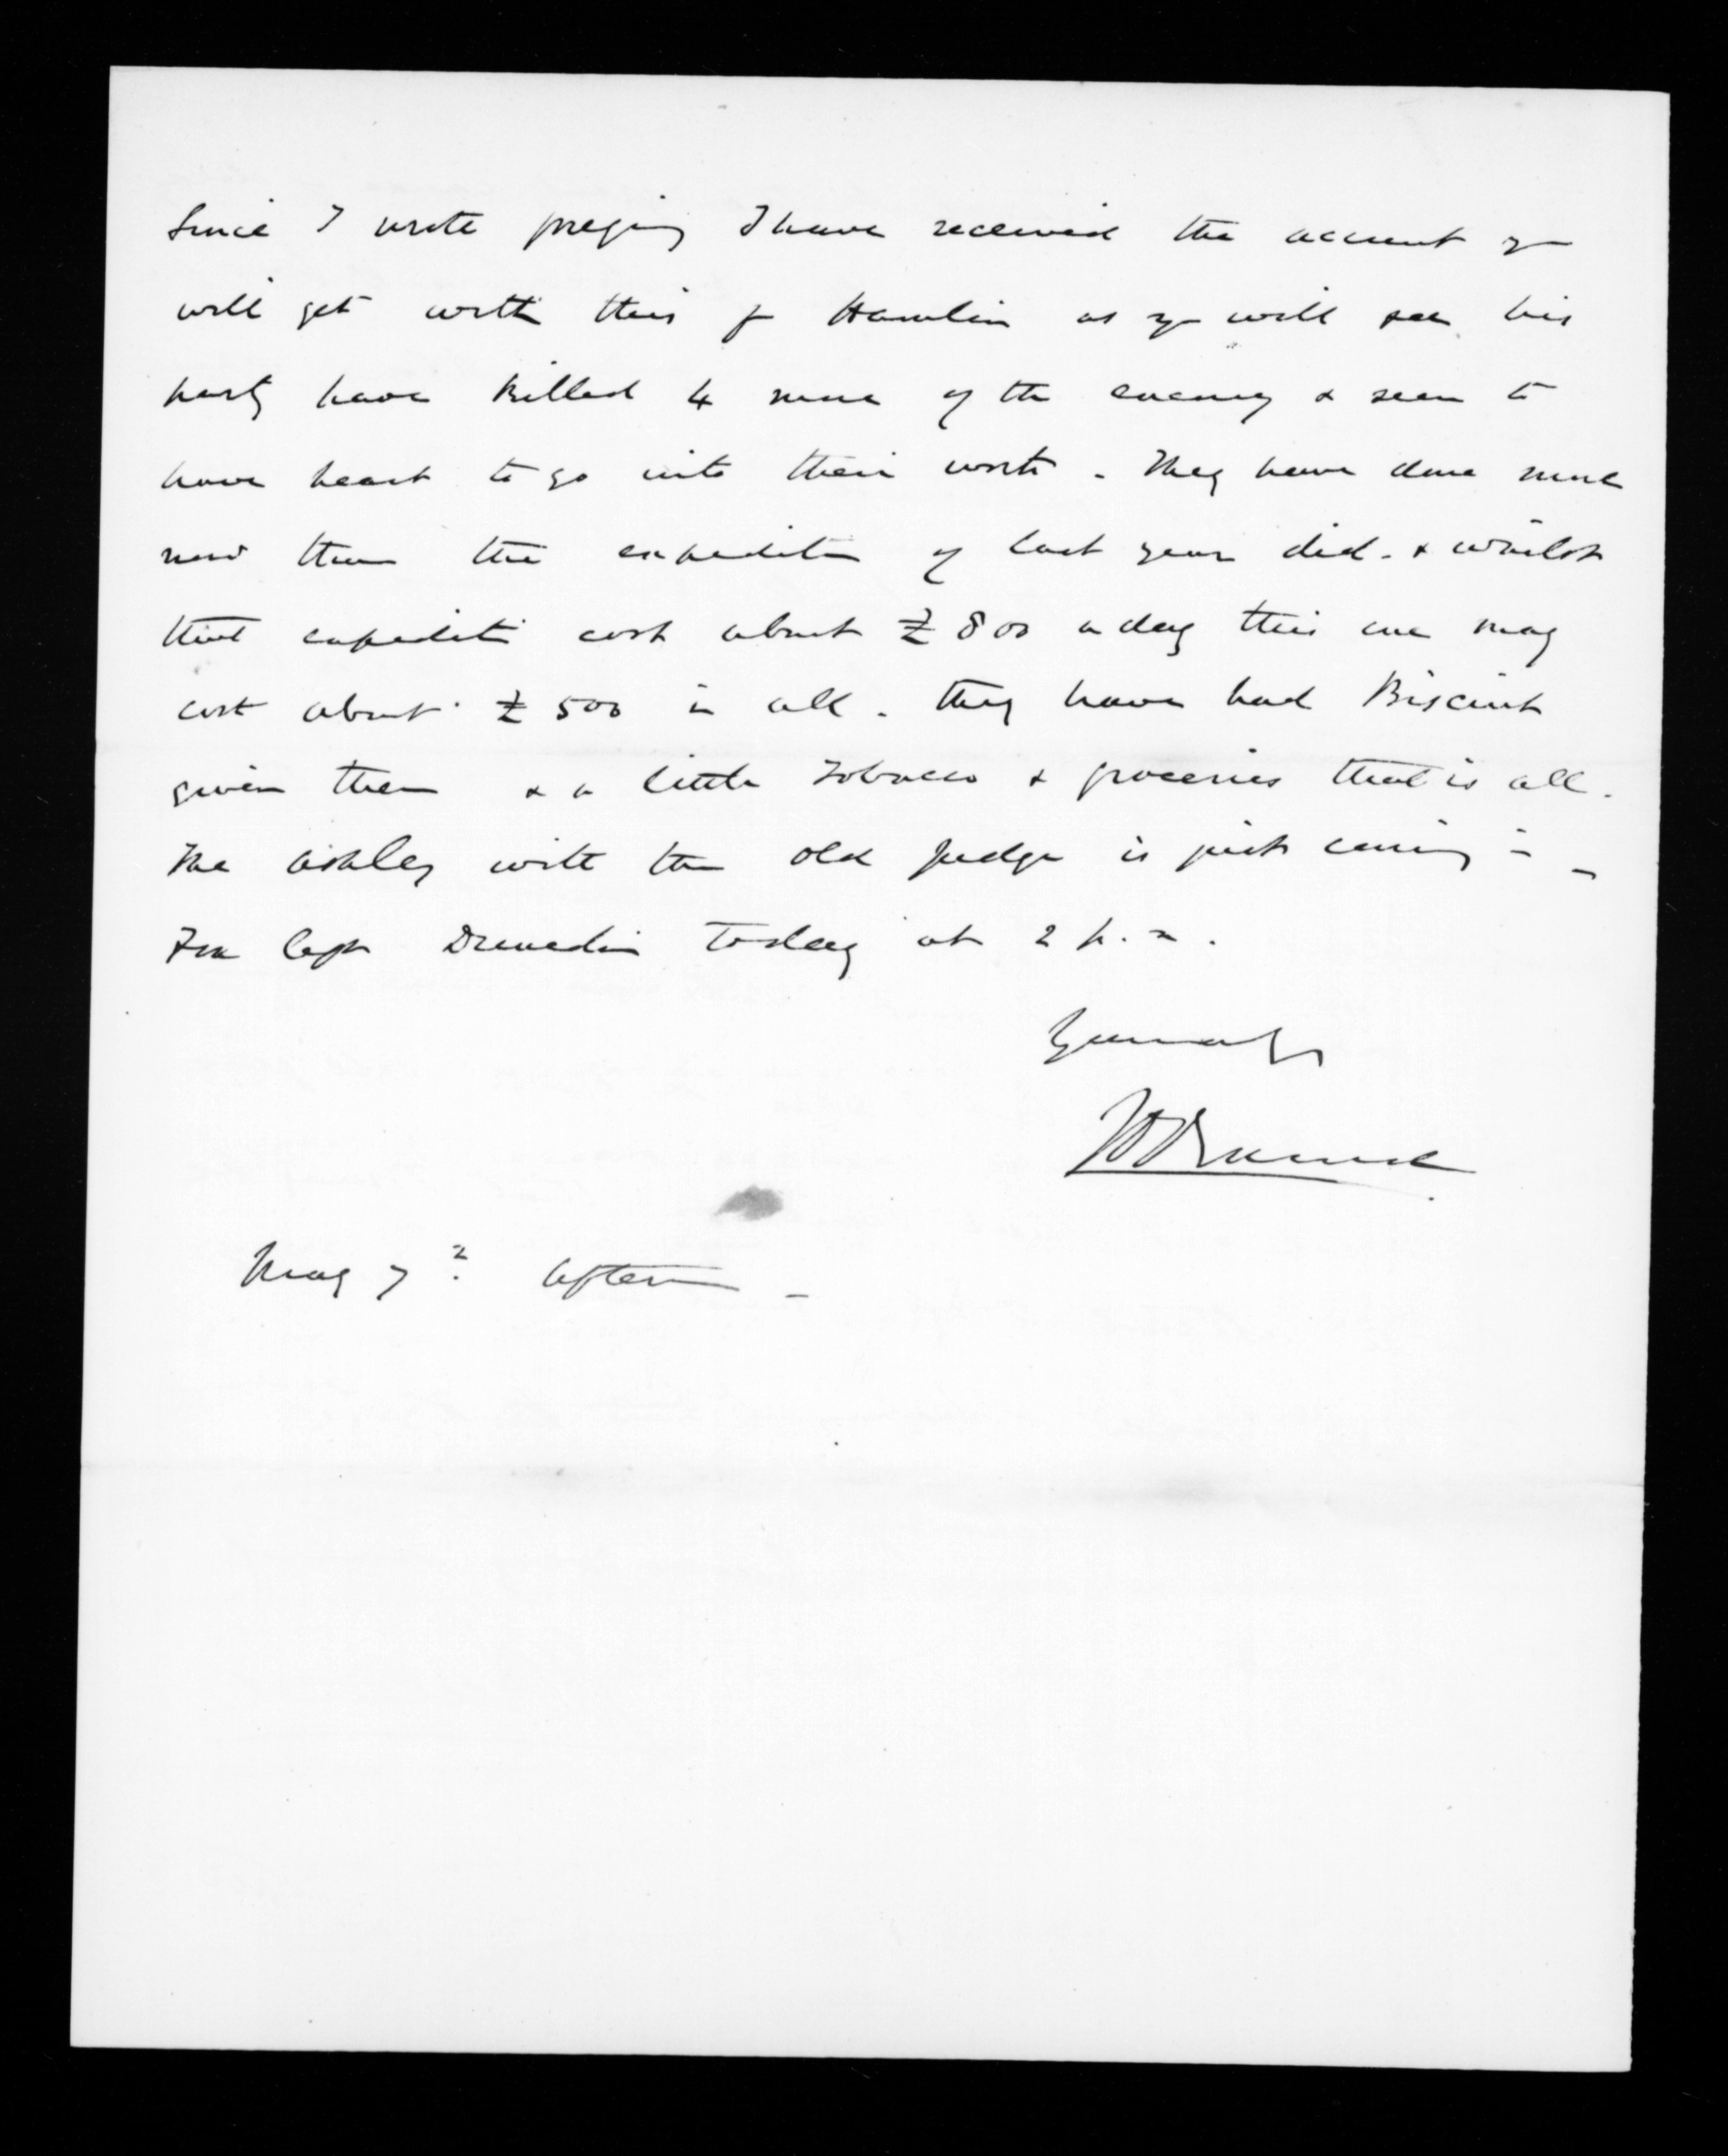 Since I wrote foregoing I have received the account you
will get with this fr Hamlin as you will see his
party have killed 4 more of the enemy & seem to
have heart to go into their work - They have done more
now than the expedition of last year did - & whilst
that expedition cost about £800 a day this one may
cost about £500 in all - they have had Biscuit
given them & a little Tobacco & groceries that is all.
The Ashley with the old Judge is just coming in -
Fox left Dunedin Today at 2 p.m.
Yours
May 7 Aftern -